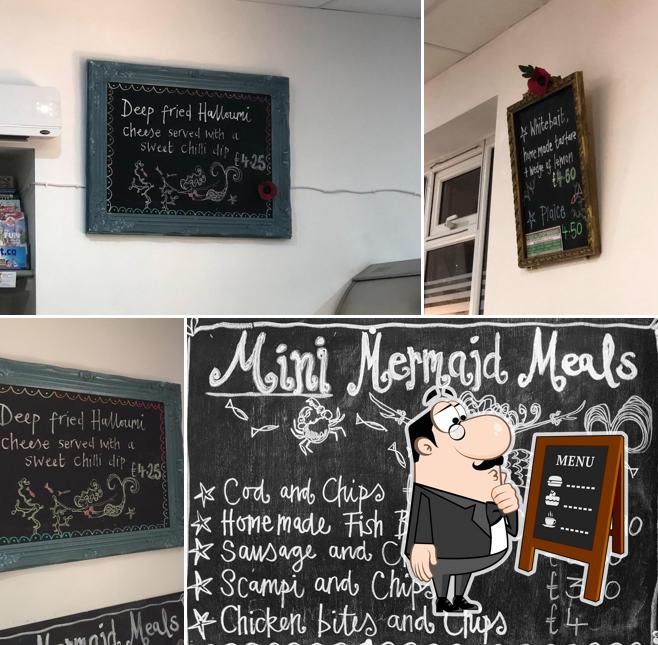 Deep fried Halloumi
cheese served with a
sweet chilli dip
£4.25
Whitebait,
home made tartare
+ wedge of lemon
£4.50
Plaice
4.50
Deep fried Halloumi
cheese served with a
sweet chilli dip
£4.25
Mermaid Meals
Mini Mermaid Meals
Cod and Chips
Homemade Fish
Sausage and
Scampi and Chips
Chicken bites and Chips
£4
MENU